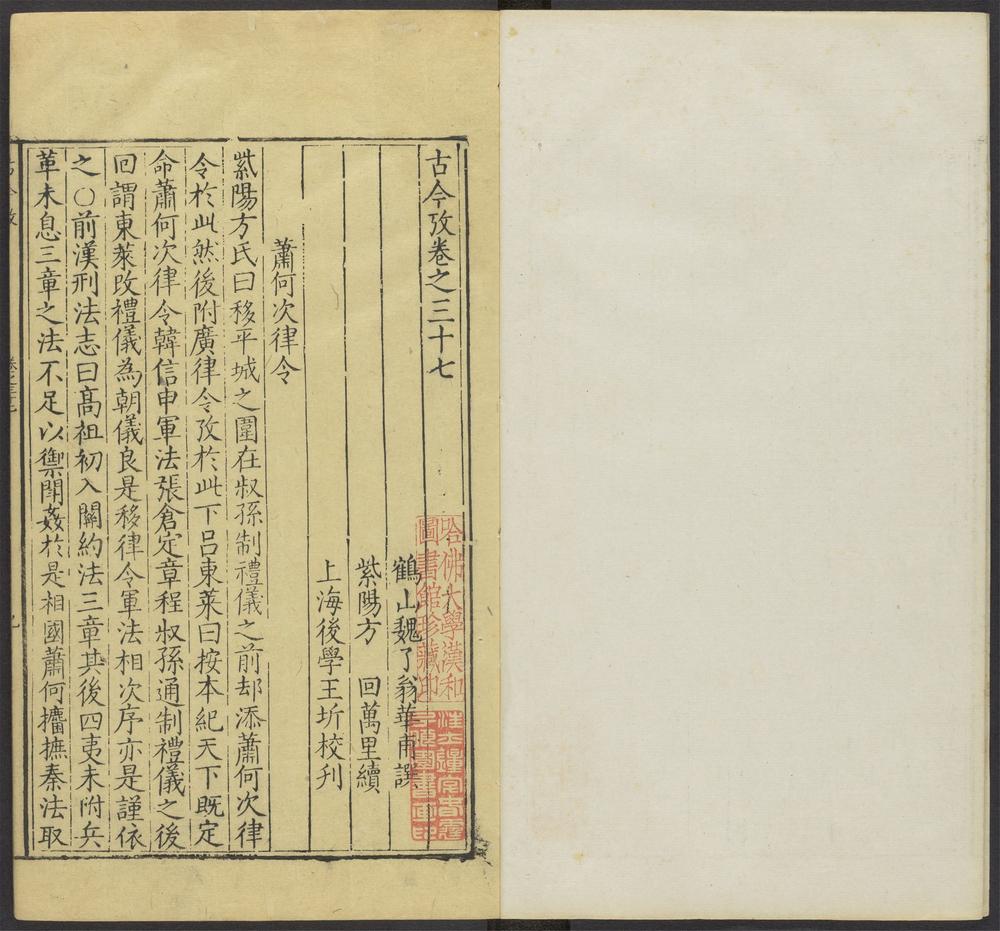 古今攷卷之三十七
鶴山魏了翁華甫譔
紫陽方 回萬里續
上海後學王圻校刋
蕭何次律令
紫陽方氏曰移平城之圍在叔孫制禮儀之前却添蕭何次律
令於此然後附廣律令攷於此下呂東萊曰按本紀天下既定
命蕭何次律令韓信申軍法張倉定章程叔孫通制禮儀之後
回謂東萊改禮儀為朝儀良是移律令軍法相次序亦是謹依
之○前漢刑法志曰髙祖初入關約法三章其後四夷未附兵
革未息三章之法不足以禦姦於是相國蕭何攟摭秦法取
哈佛大學漢和
圖書館珍藏印